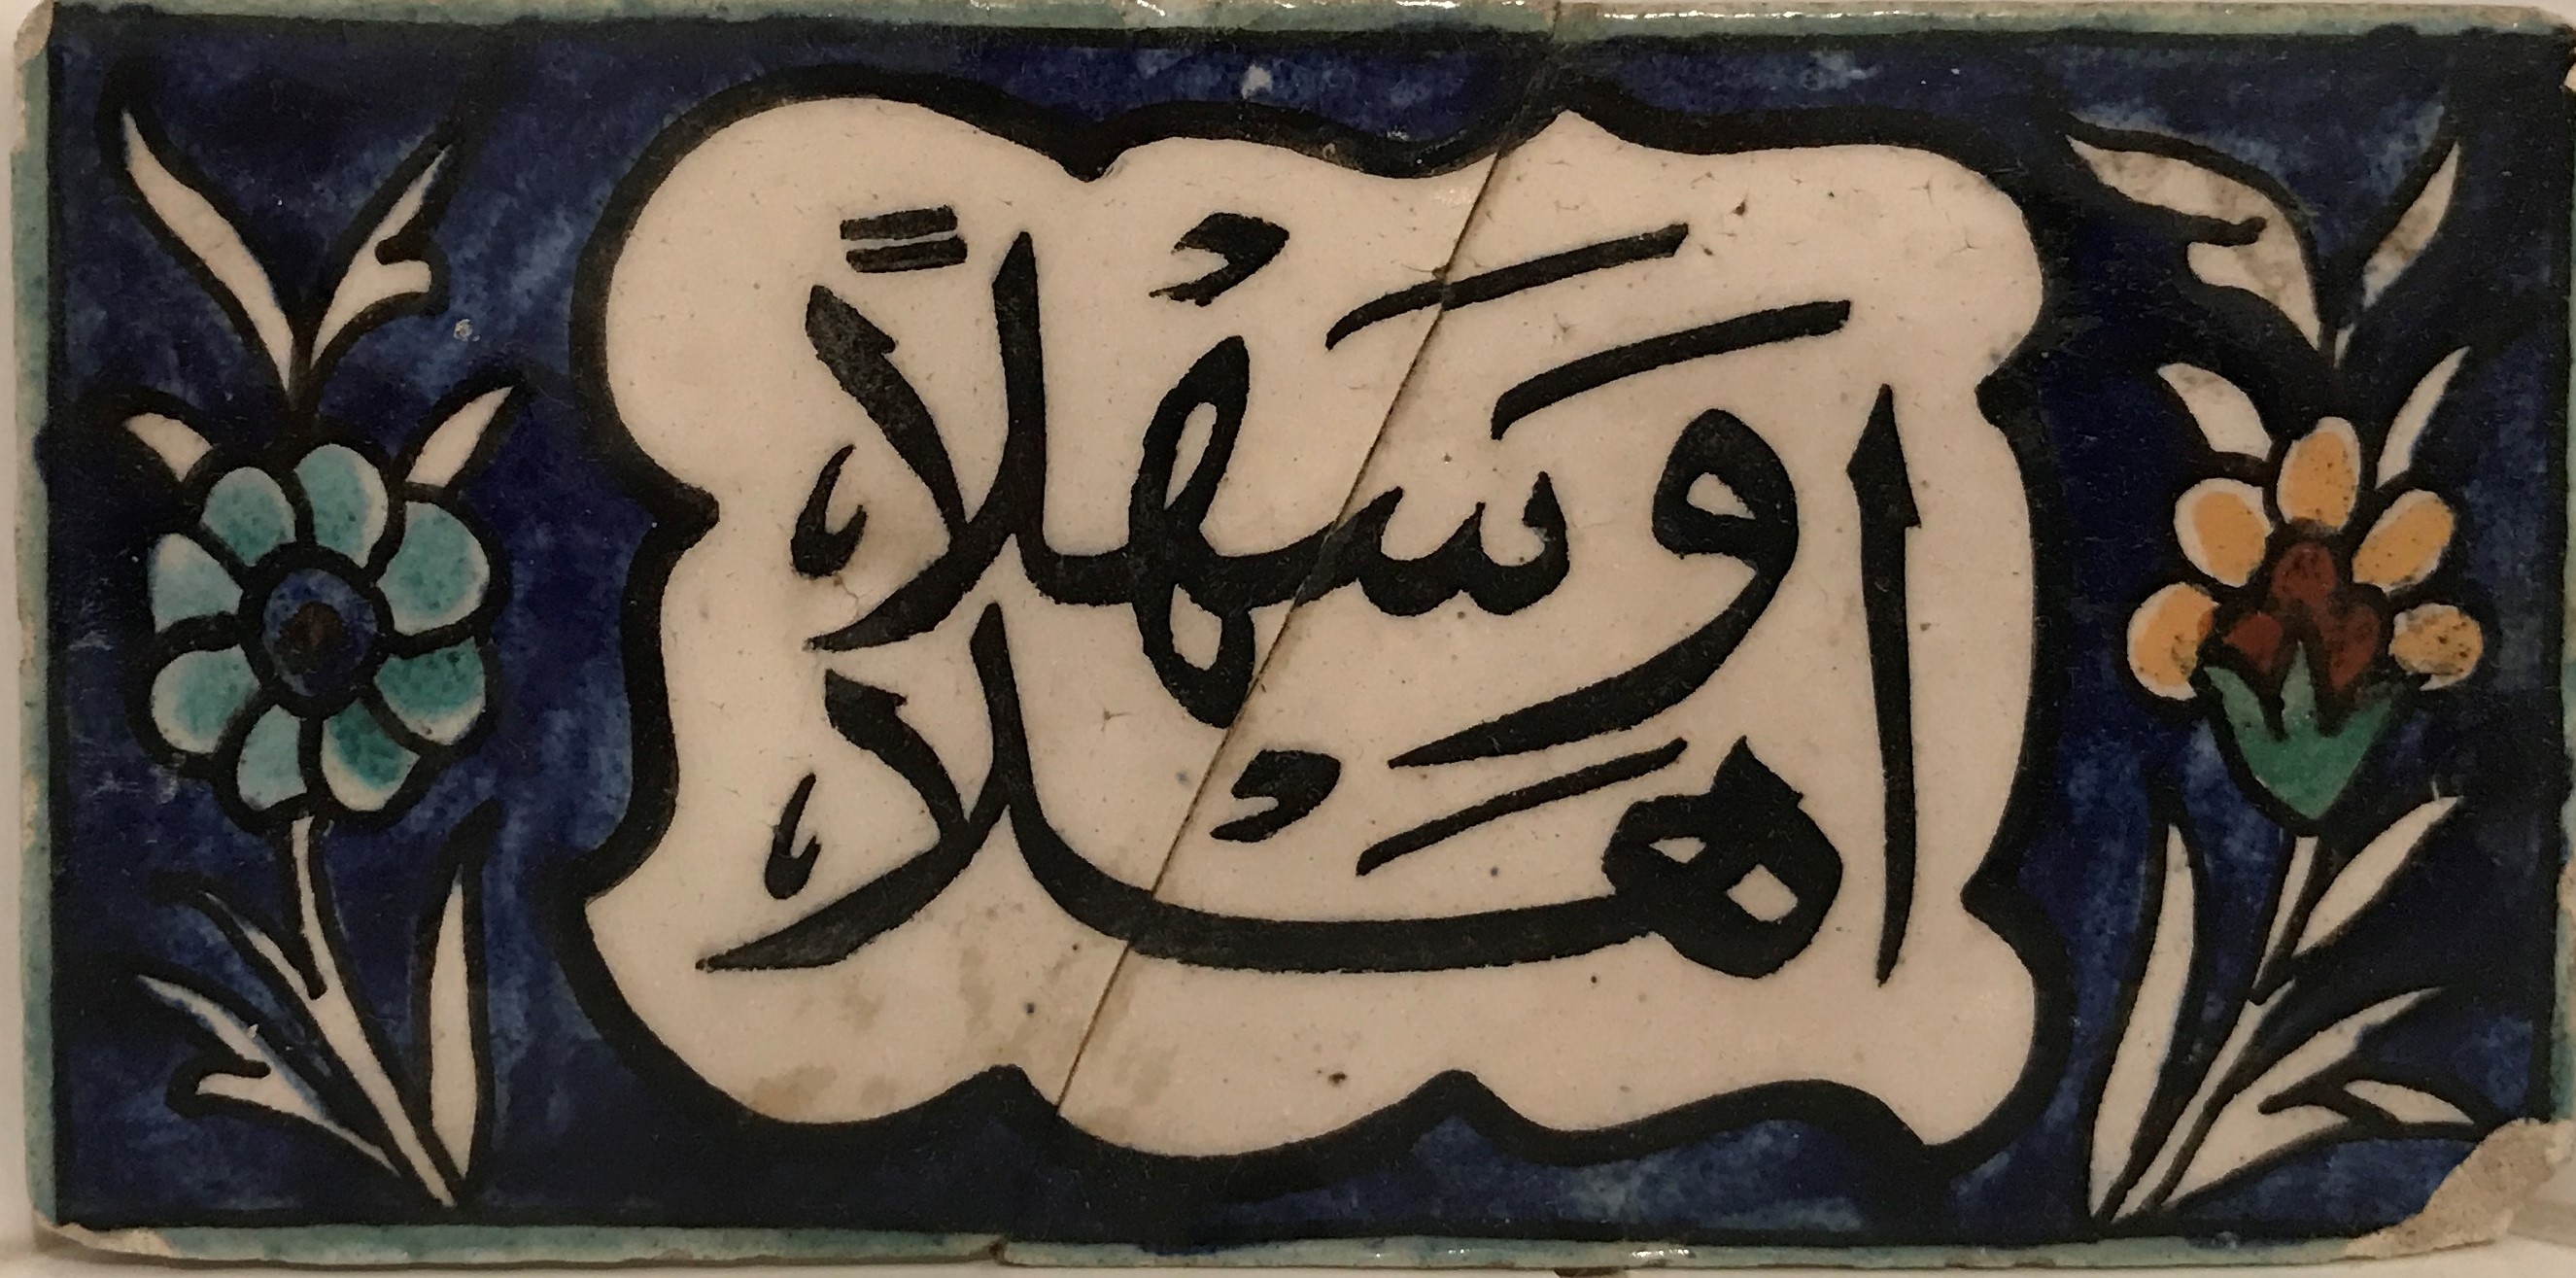 اهلا
وسهلاً